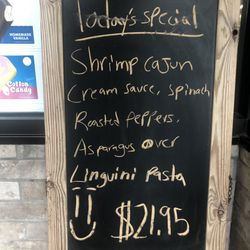 Today's Special
Shrimp cajun
Cream sauce, spinach
Roasted Peppers,
Asparagus over
Linguini Pasta
$21.95
HOMEMADE
VANILLA
Cotton
Candy